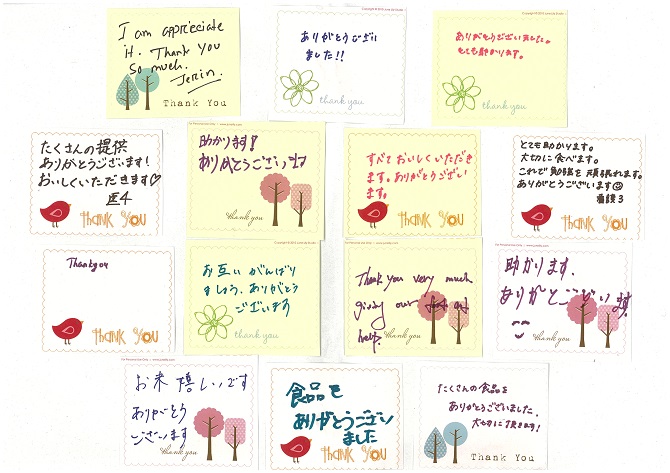 I am appreciate
it. Thank you
so much.
Jerin.
Thank You
ありがとうござい
ました!!
thank you
ありがとうございました。
とても助かります。
thank you
たくさんの提供
ありがとうございます!
おいしくいただきます♡
医4
THANK YOU
助かります!
ありがとうございます
thank you
すべておいしくいただき
ます。ありがとうござい
ます。
THANK YOU
とても助かります。
大切に食べます。
これで勉強を頑張れます。
ありがとうございます☺
看護3
THANK YOU
Thankyou
THANK YOU
お互いがんばり
ましょう。ありがとう
ございます
thank you
Thank you very much
giving our food and
help.
thank you
助かります.
ありがとうございます!
thank you
お米嬉しいです
ありがとう
ございます
thank you
食品を
ありがとうござい
ました
THANK YOU
たくさんの食品を
ありがとうございました.
大切に頂きます!
Thank You